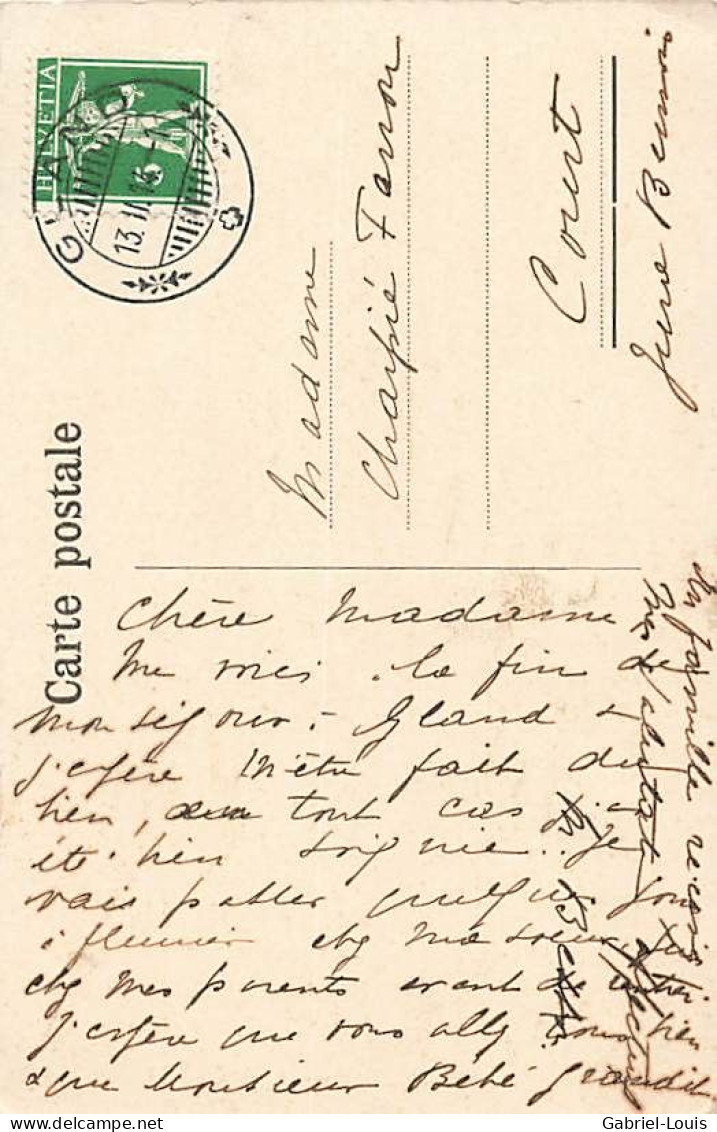 HELVETIA
GLAND
13.
Carte postale
Madame
Charpié Farron
Court
Jura Bernois
Chère Madame
Me voici à la fin de
mon séjour à Gland &
j'espère m'être fait du
bien, en tout cas j'ai
été bien soignée. Je
vais passer quelques jours
à fleurier chez ma soeur, puis
chez mes parents avant de rentrer.
J'espère que vous allez tous bien
& que Monsieur Bébé grandit
famille
Gabriel-Louis